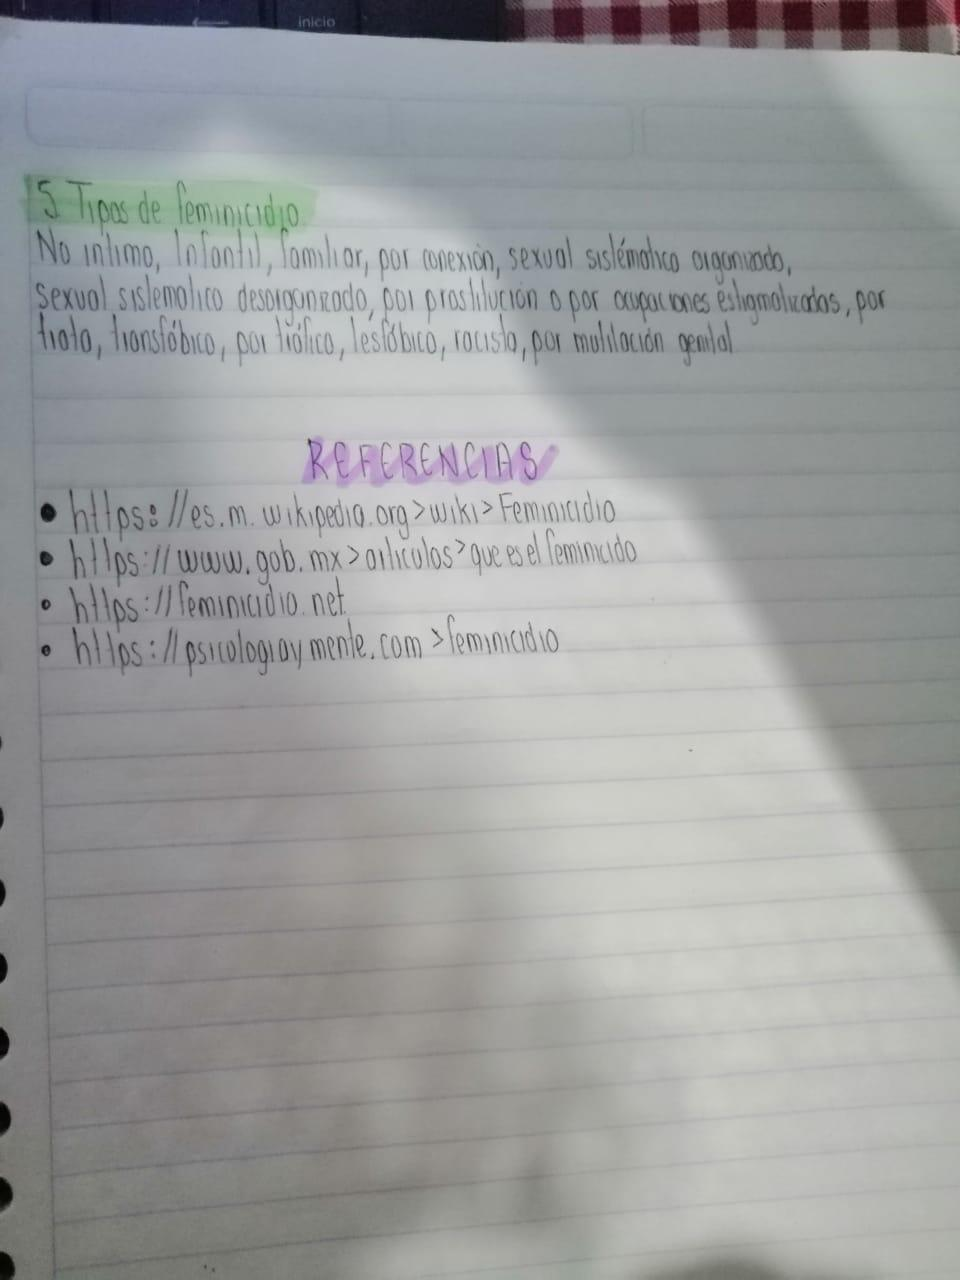 inicio
5 Tipos de feminicidio
No intimo, Infantil, familiar, por conexión, sexual sistémático organizado,
sexual sistematico desorganizado, por prostitución o por ocupaciones estigmatizadas, por
trata, transfóbico, por tráfico, lesfóbico, racista, por mutilación genital
REFERENCIAS
• https://es.m.wikipedia.org>wiki>Feminicidio
• https://www.gob.mx>articulos>que es el feminicido
• https://feminicidio.net
• https://psicologiaymente.com>feminicidio